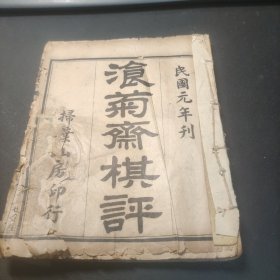 民國元年刊
漁菊齋棋評
掃葉山房印行